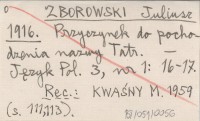 ZBOROWSKI Juliusz
1916. Przyczynek do pocho
dzenia nazwy Tatr. —
Język Pol. 3, nr 1: 16-17.
Rec.: KWAŚNY M. 1959
(s. 111,113).